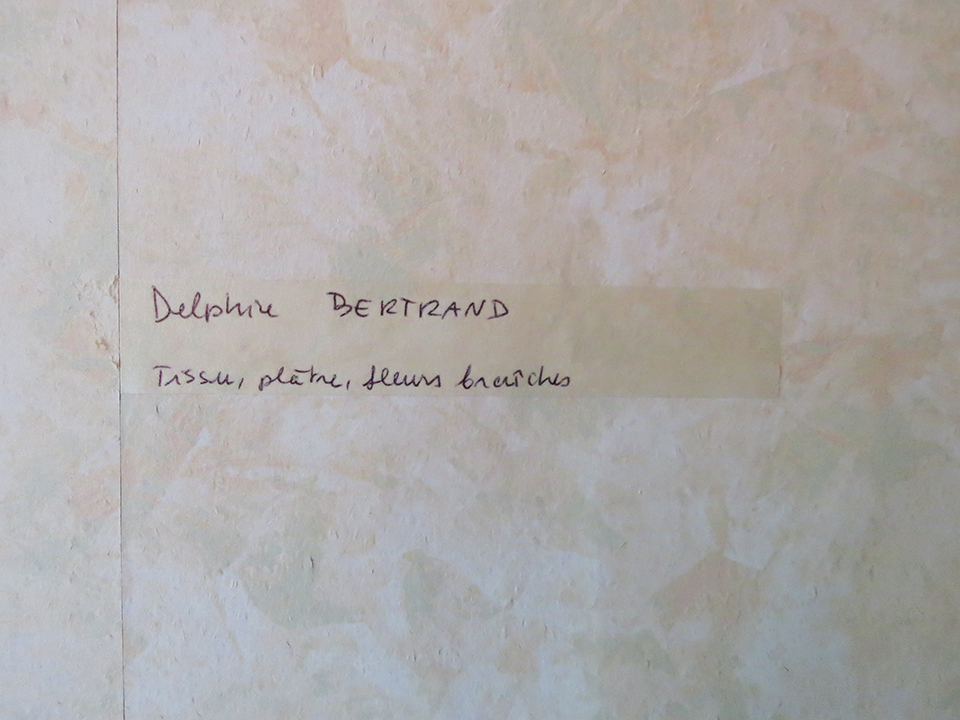 Delphine BERTRAND
Tissu, plâtre, fleurs fraîches